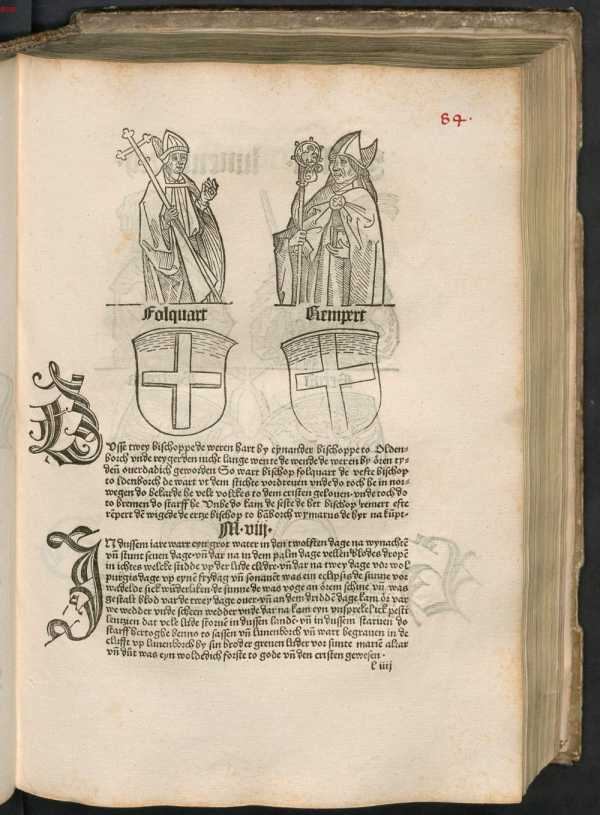 84.
Folquart Rempert
Dusse twey bischoppe de weren hart by eynander bischoppe to Olden-
borch vnde reygerden nicht lange wente de wende de weren by ören ty-
den ouerdadich geworden So wart bischop folquart de veste bischop
to oldenborch de wart vt dem stichte vordreuen vnde do toch he in nor-
wegen do bekarde he vele volckes to dem cristen gelouen vnde toch do
to bremen do starff he Vnde do kam de seste de het bischop reinert efte
rempert den wigede de ertze bischop to hāborch wymarus de hyr na kūpt
M.viij.
IN dussem iare warr eyn grot water in den twolften dage na wynachtē
vn̄ stunt seuen dage vn̄ dar na in dem palm dage vellen blodes dropen
in ichtes welcke stidde vp der lude cledre vn̄ dar na twey dage vor wol
purgis dage vp eynē frydag vn̄ sonauent was ein eclipsis de sunne vor
wandelde sick wunderliken de sunne de was
gestalt blod var de twey dage ouer vn̄ an dem dridden dage kam ör var
we wedder vnde scheen wedder vnde dar na kam eyn vnsprekelick pesti
lentzien dat vele lude storuen in dussen lande vn̄ in dussem staruen do
starff hertoghe benno to sassen vn̄ luneborch vn̄ wart begrauen in de
clufft vp luneborch by sin broder greuen luder vor sunte marien altar
vn̄ dut was eyn woldedich forste to gode vn̄ den cristen gewesen
l iiij